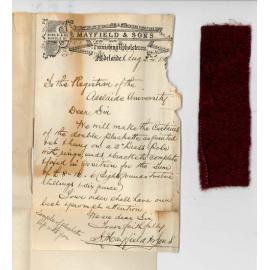 MAYFIELD & SONS
Furnishing Upholsterers
Adelaide, Aug
To the Registrar of the
Adelaide University
Dear Sir
We will make the Curtains
of the double plushette as pointed
out hung on a 3" Pole
with rings and brackets complete
fixed in position for the sum
of £8-12-6 (Eight pounds twelve
shillings & six pence)
Your order shall have our
best & prompt attention
We are dear Sir
Yours faithfully
Mayfield & Sons